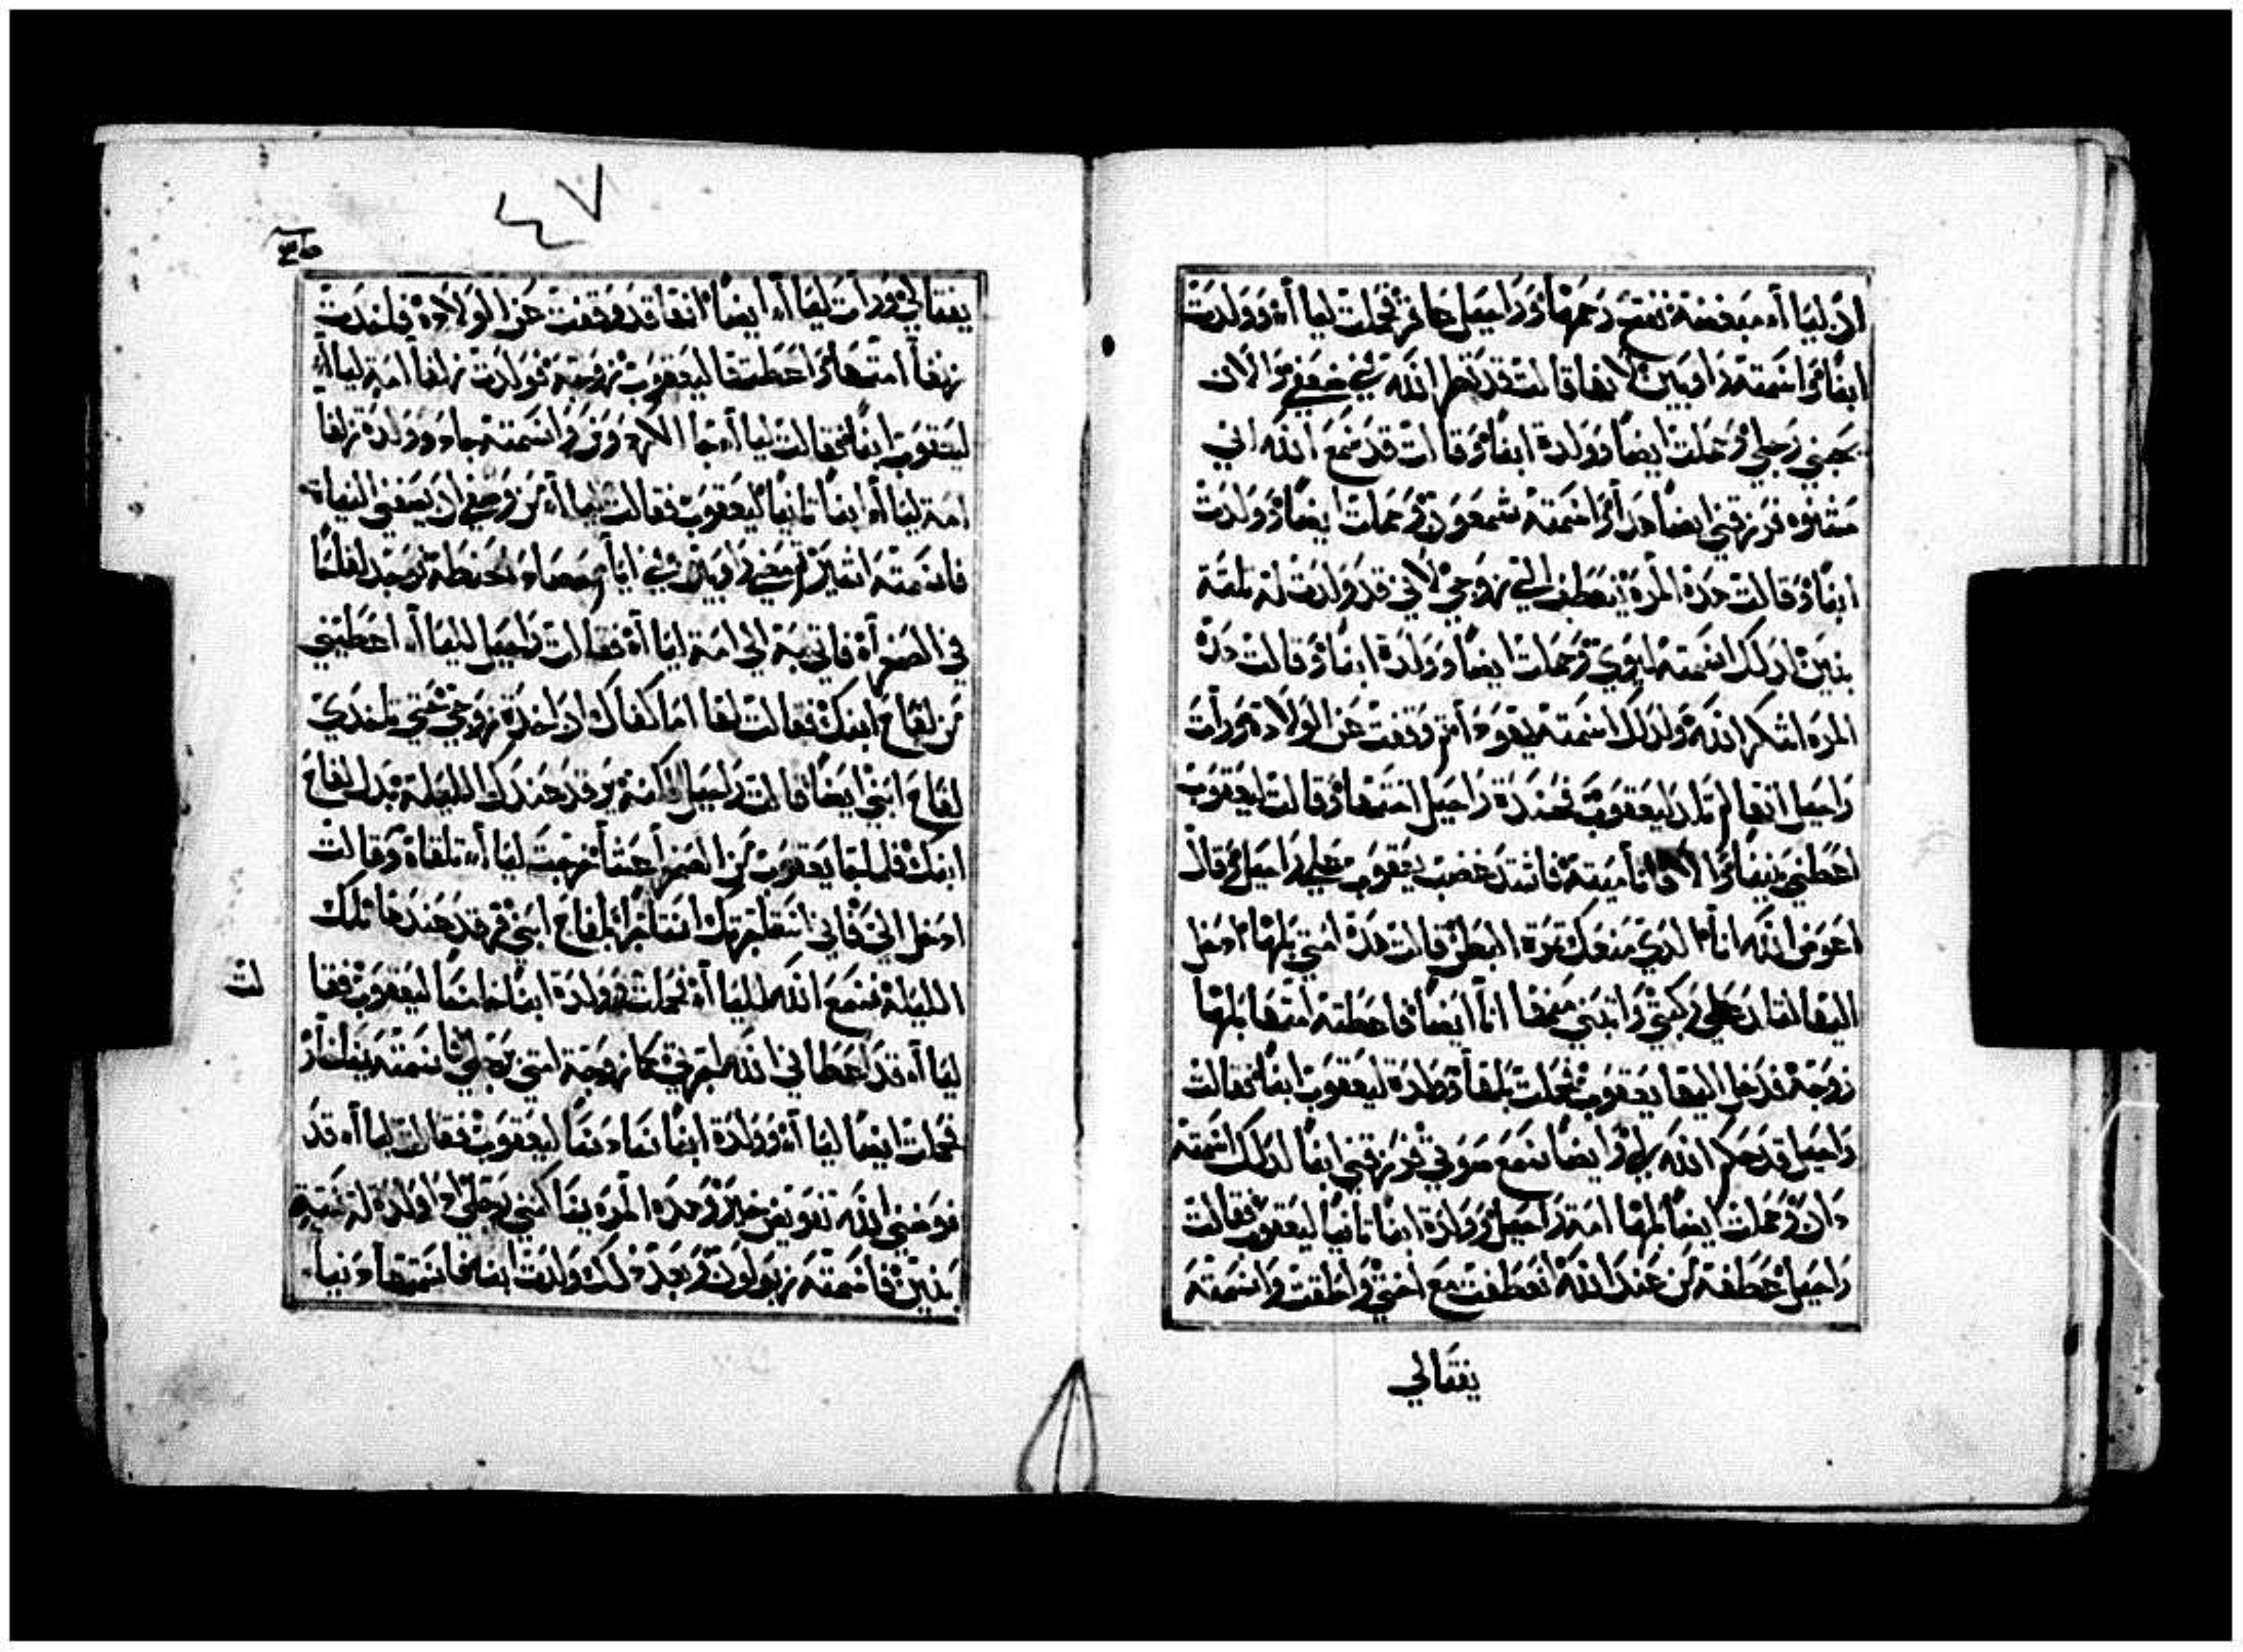 ان ليا آه مبغضة ففتح رحمها وراحيل عاقر فحملت ليا آه وولدت
ابنا واسمته راوبين لانها قالت قد نظر الله في ضعفي والان
يحبني رجلي وحملت ايضا وولدة ابنا وقالت قد سمع الله اني
مشنوه فرزقني ايضا هدا واسمته شمعون وحملت ايضا وولدت
ابنا وقالت هده المره ينعطف الي زوجي لاني قد ولدت له ثلثة
بنين لدلك اسمته ليوي وحملت ايضا وولدة ابنا وقالت هده
المره اشكر الله ولدلك اسمته يهودا ثم وقفت عن الولادة ورأت
راحيل انها لم تلد ليعقوب فحسدة راحيل اختها وقالت ليعقوب
اعطني بنينا والا فانا ميتة فاشتد غضب يعقوب علي راحيل وقال
اعوض الله انا الدي منعك ثمرة البطن قالت هده امتي بلها ادخل
اليها لتلد علي ركبتي وابتني منها انا ايضا فاعطته امتها بلها
زوجة فدخل اليها يعقوب فحملت بلها وولدة ليعقوب ابنا فقالت
راحيل قد حكم الله لي وايضا سمع صوتي فرزقني ابنا لدلك اسمته
دان وحملت ايضا بلها امة راحيل وولدة ابنا ثانيا ليعقوب فقالت
راحيل عطفة من عند الله انعطفت مع اختي واطقت واسمته
يفتالي
٤٧
يفتالي ورأت ليا آه ايضا انها قد وقفت عن الولاده فاخدت
زلفا امتها واعطتها ليعقوب زوجة فولدت زلفا امة ليا آه
ليعقوب ابنا فقالت ليا آه جا واسمته جاد وولدة زلفا
امة ليا آه ابنا ثانيا ليعقوب فقالت ليا آه من
فاسمته اشير ثم مضي راوبين في ايام حصاد الحنطة فوجد لفاحا
في الصحرآه فاتي به الي امه ليا آه فقالت راحيل لليا آه اعطيني
من لفاح ابنك فقالت لها اما كفاك ان اخدة زوجي حتي تاخدي
لفاح ابني ايضا قالت راحيل يرقد عندك الليلة بدل لفاح
ابنك فلما جا يعقوب من الصحرا عشا خرجت ليا آه تلقاه وقالت
ادخل الي فاني استاجرتك استاجرا بلفاح ابني فرقد عندها تلك
الليلة فسمع الله لليا آه فحملت وولدة ابنا خامسا ليعقوب فقا
لت
ليا آه قد اعطاني الله اجرتي كما زوجة امتي رجلي فاسمته يساخار
فحملت ايضا ليا آه وولدة ابنا سادسا ليعقوب فقالت ليا آه قد
عوضني الله تعويض خير وهده المره يساكنني رجلي اد ولدة له ستة
بنين فاسمته زبولون وبعد دلك ولدت ابنة فاسمتها دينا